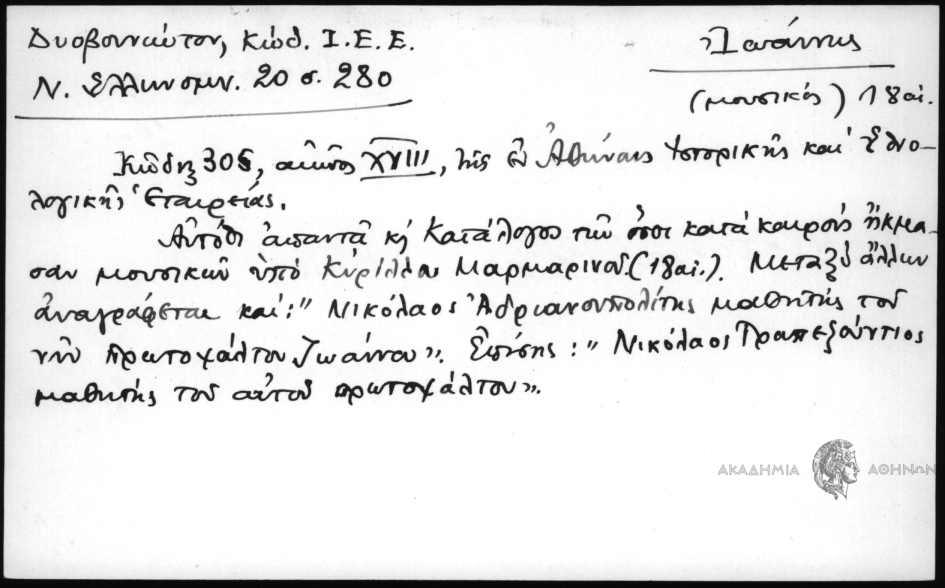 Δυοβουνιώτου, Κώδ. Ι.Ε.Ε.
Ν. Ἑλληνομν. 20 σ. 280
Ἰωάννης
(μουσικός) 18 αἰ.
Κῶδιξ 305, αἰῶνος XVIII, τῆς ἐν Ἀθήναις Ἱστορικῆς καὶ Ἐθνο-
λογικῆς Ἑταιρείας.
Αὐτόθι ἀπαντᾷ κ) Κατάλογος τῶν ὅσοι κατὰ καιροὺς ἤκμα-
σαν μουσικῶν ὑπὸ Κυρίλλου Μαρμαρινοῦ (18 αἰ.). Μεταξὺ ἄλλων
ἀναγράφεται καὶ: " Νικόλαος Ἀδριανουπολίτης μαθητὴς τοῦ
νῦν πρωτοψάλτου Ἰωάννου". Ἐπίσης: " Νικόλαος Τραπεζούντιος
μαθητὴς τοῦ αὐτοῦ πρωτοψάλτου".
ΑΚΑΔΗΜΙΑ ΑΘΗΝΩΝ